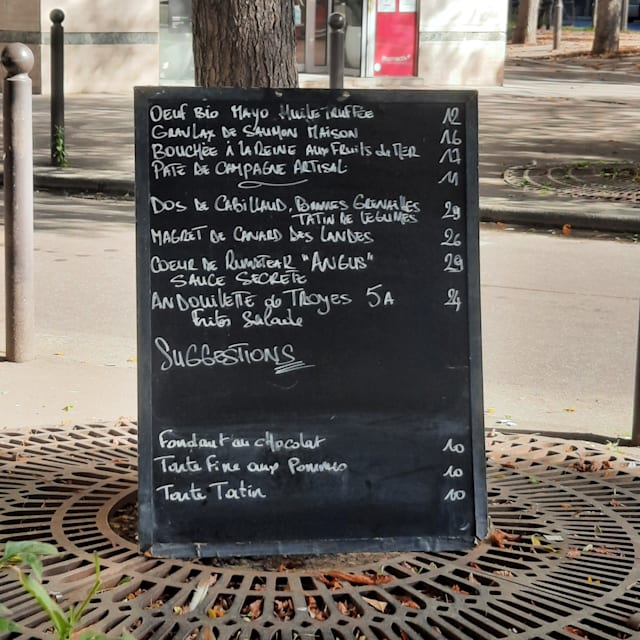 OEUF BIO MAYO HUILE TRUFFÉE 12
GRAVLAX DE SAUMON MAISON 16
BOUCHÉE À LA REINE AUX FRUITS du MER 17
PATE DE CAMPAGNE ARTISAL 11
DOS DE CABILLAUD, POMMES GRENAILLES 29
TATIN DE LEGUMES
MAGRET DE CANARD DES LANDES 26
COEUR DE RUMSTEAK "ANGUS" 29
SAUCE SECRETE
ANDOUILLETTE de TROYES 5A 24
Frites Salade
SUGGESTIONS
Fondant au chocolat 10
Tarte Fine aux Pommes 10
Tarte Tatin 10